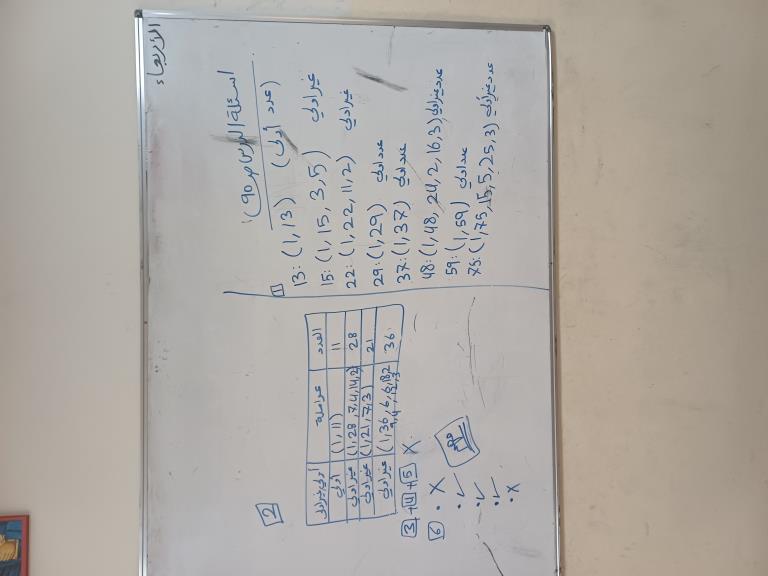 الأربعاء
اسئلة الدرس ص90
1
13: (1, 13) (عدد أولي)
15: (1, 15, 3, 5) غير اولي
22: (1, 22, 11, 2) غير اولي
29: (1, 29) عدد اولي
37: (1, 37) عدد اولي
48: (1, 48, 24, 2, 16, 3) عدد غير اولي
59: (1, 59) عدد اولي
75: (1, 75, 15, 5, 25, 3) عدد غير أولي
2
العدد عوامله أولي/غير اولي
11 (1, 11) أولي
28 (1, 28, 7, 4, 14, 2) غير اولي
21 (1, 21, 7, 3) غير اولي
36 (1, 36, 6, 18, 2 غير اولي
3 + 4 + 5 X
6 • X
• ✓
• ✓
• ✓
• X